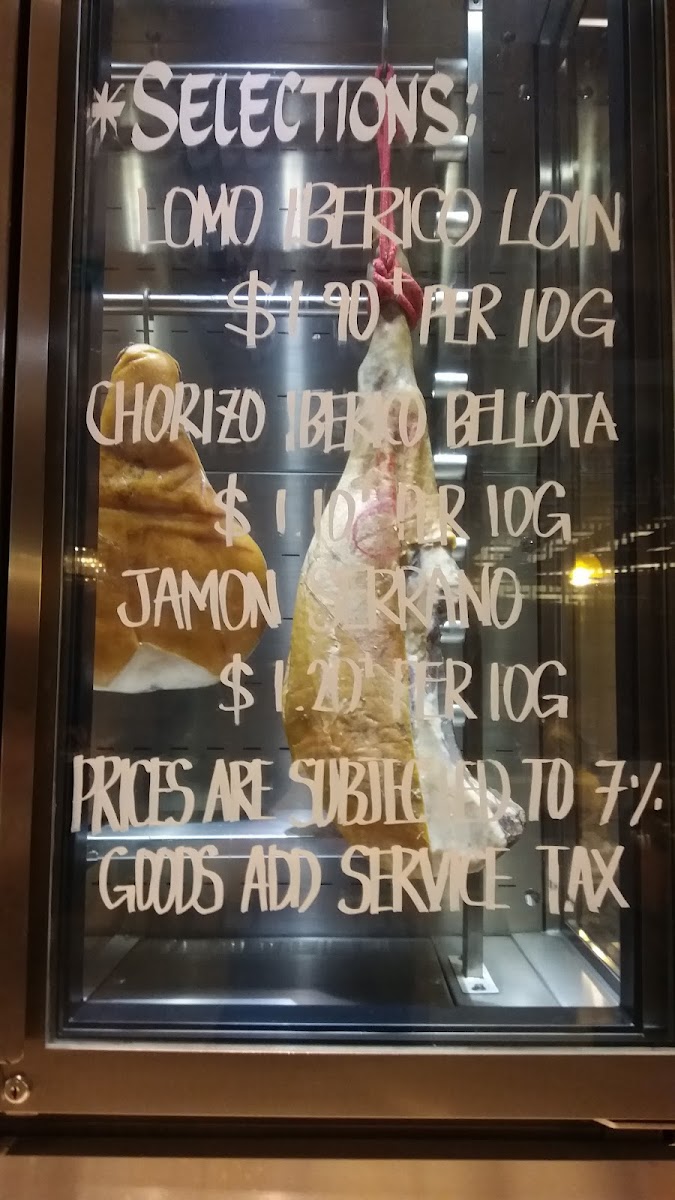 *SELECTIONS:
LOMO IBERICO LOIN
$1.90+ PER 10G
CHORIZO IBERICO BELLOTA
$1.10+ PER 10G
JAMON SERRANO
$1.20+ PER 10G
PRICES ARE SUBJECTED TO 7%
GOODS ADD SERVICE TAX